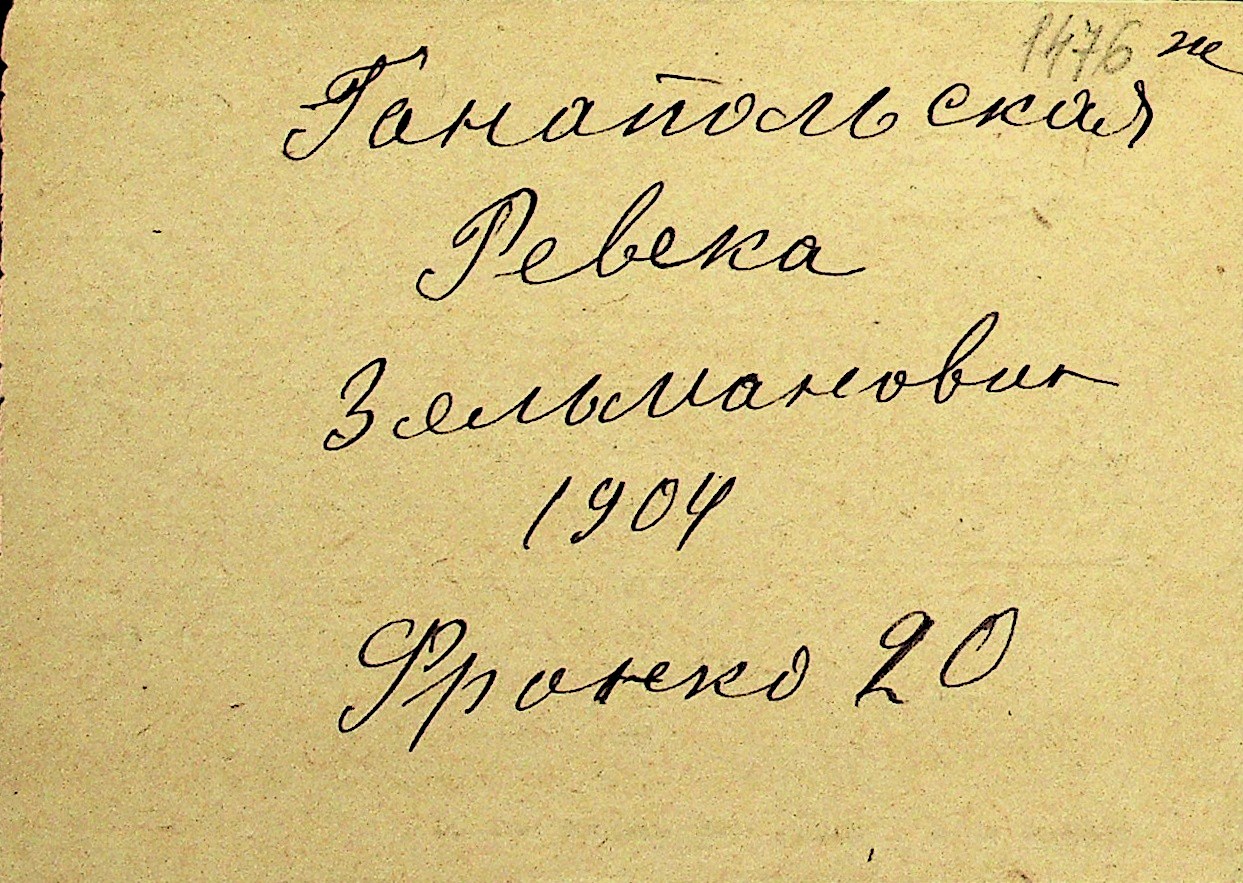 1476 ж
Ганапольская
Ревека
Зельманович
1904
Франко 20